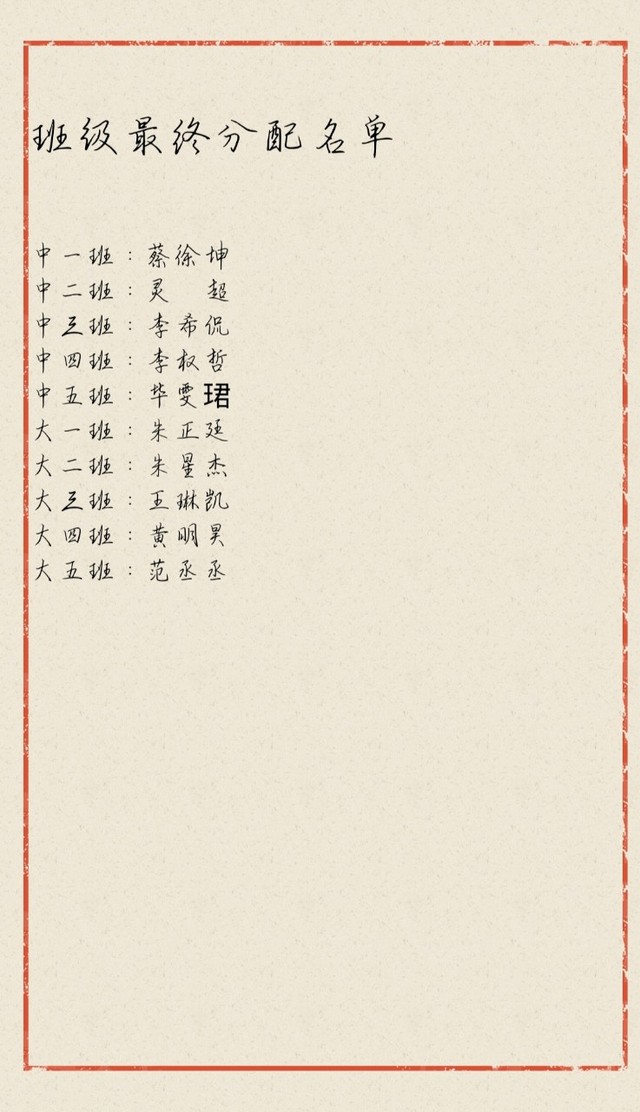 班级最终分配名单
中一班：蔡徐坤
中二班：灵　超
中三班：李希侃
中四班：李权哲
中五班：毕雯珺
大一班：朱正廷
大二班：朱星杰
大三班：王琳凯
大四班：黄明昊
大五班：范丞丞